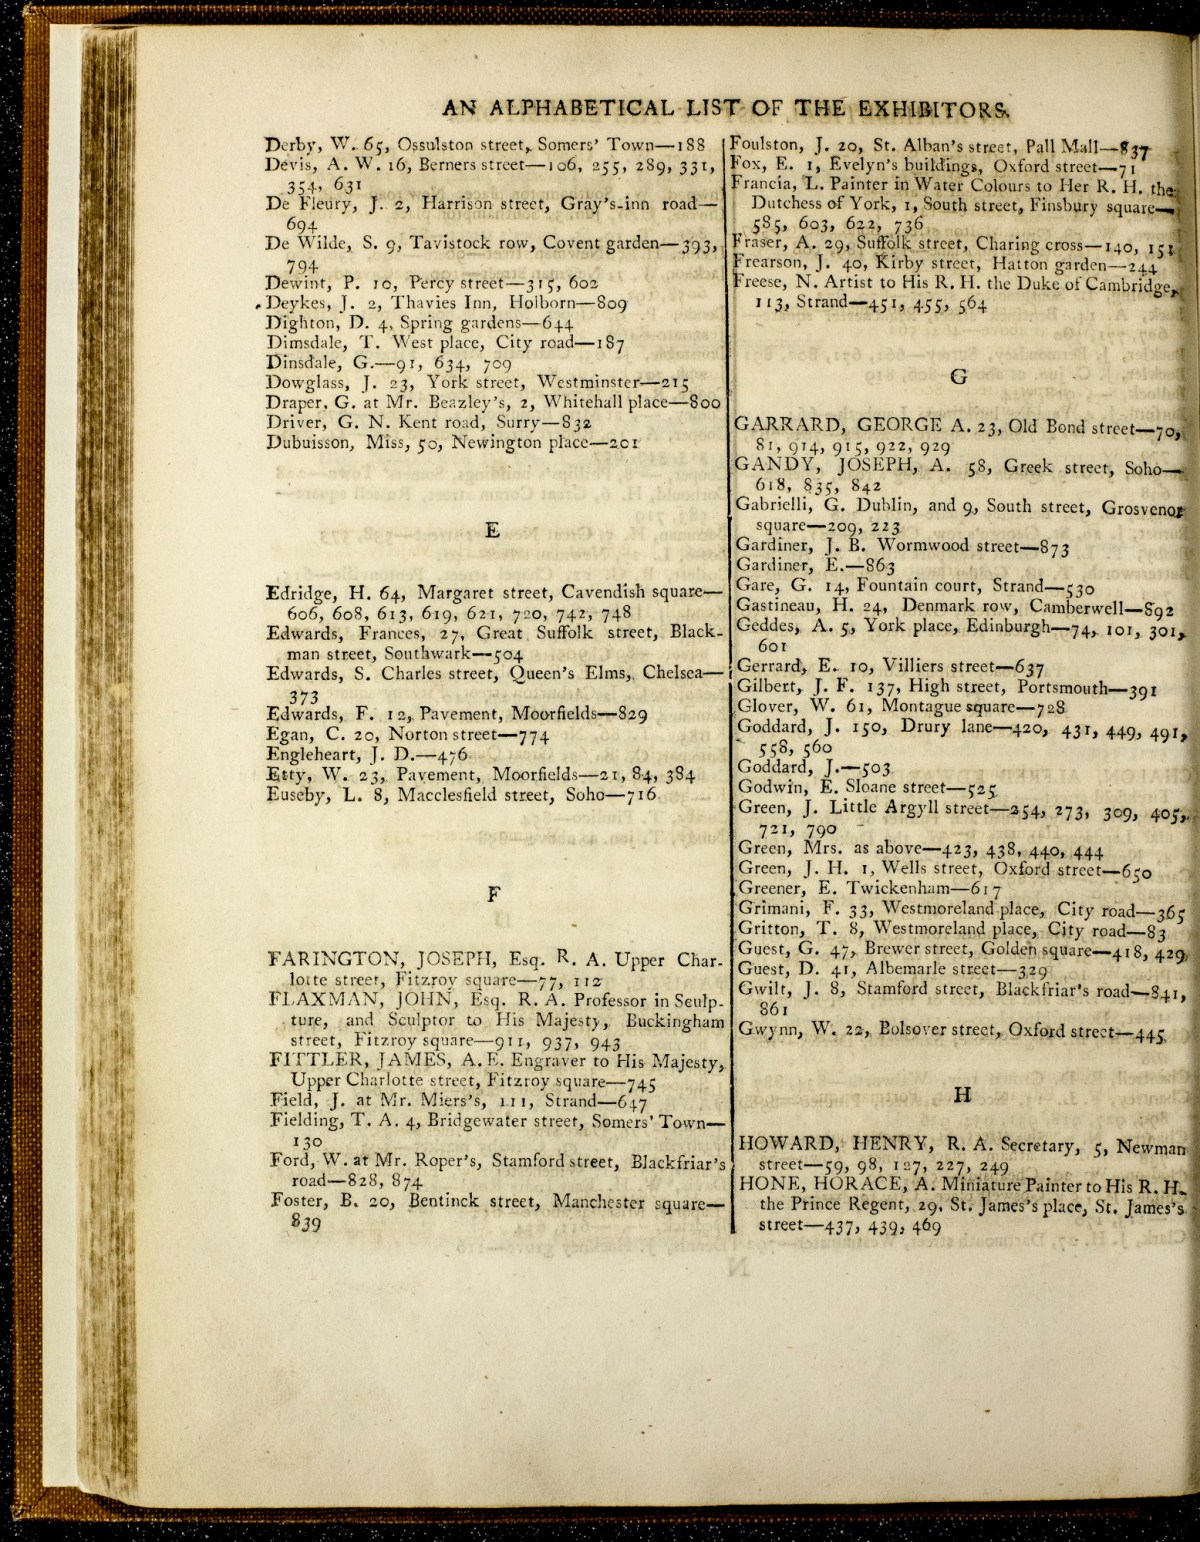 AN ALPHABETICAL LIST OF THE EXHIBITORS.
Derby, W. 65, Ossulston street, Somers' Town—188
Devis, A. W. 16, Berners street—106, 255, 289, 331,
354, 631
De Fleury, J. 2, Harrison street, Gray's-inn road—
694
De Wilde, S. 9, Tavistock row, Covent garden—393,
794
Dewint, P. 10, Percy street—315, 602
Deykes, J. 2, Thavies Inn, Holborn—809
Dighton, D. 4, Spring gardens—644
Dimsdale, T. West place, City road—187
Dinsdale, G.—91, 634, 709
Dowglass, J. 23, York street, Westminster—215
Draper, G. at Mr. Beazley's, 2, Whitehall place—800
Driver, G. N. Kent road, Surry—832
Dubuisson, Miss, 50, Newington place—201
E
Edridge, H. 64, Margaret street, Cavendish square—
606, 608, 613, 619, 621, 720, 742, 748
Edwards, Frances, 27, Great Suffolk street, Black-
man street, Southwark—504
Edwards, S. Charles street, Queen's Elms, Chelsea—
373
Edwards, F. 12, Pavement, Moorfields—829
Egan, C. 20, Norton street—774
Engleheart, J. D.—476
Etty, W. 23, Pavement, Moorfields—21, 84, 384
Euseby, L. 8, Macclesfield street, Soho—716
F
FARINGTON, JOSEPH, Esq. R. A. Upper Char-
lotte street, Fitzroy square—77, 112
FLAXMAN, JOHN, Esq. R. A. Professor in Sculp-
ture, and Sculptor to His Majesty, Buckingham
street, Fitzroy square—911, 937, 943
FITTLER, JAMES, A. E. Engraver to His Majesty,
Upper Charlotte street, Fitzroy square—745
Field, J. at Mr. Miers's, 111, Strand—647
Fielding, T. A. 4, Bridgewater street, Somers' Town—
130
Ford, W. at Mr. Roper's, Stamford street, Blackfriar's
road—828, 874
Foster, B. 20, Bentinck street, Manchester square—
839
Foulston, J. 20, St. Alban's street, Pall Mall—837
Fox, E. 1, Evelyn's buildings, Oxford street—71
Francia, L. Painter in Water Colours to Her R. H. the
Dutchess of York, 1, South street, Finsbury square—
585, 603, 622, 736
Fraser, A. 29, Suffolk street, Charing cross—140, 151
Frearson, J. 40, Kirby street, Hatton garden—244
Freese, N. Artist to His R. H. the Duke of Cambridge,
113, Strand—451, 455, 564
G
GARRARD, GEORGE A. 23, Old Bond street—70,
81, 914, 915, 922, 929
GANDY, JOSEPH, A. 58, Greek street, Soho—
618, 835, 842
Gabrielli, G. Dublin, and 9, South street, Grosvenor
square—209, 223
Gardiner, J. B. Wormwood street—873
Gardiner, E.—863
Gare, G. 14, Fountain court, Strand—530
Gastineau, H. 24, Denmark row, Camberwell—892
Geddes, A. 5, York place, Edinburgh—74, 101, 301,
601
Gerrard, E. 10, Villiers street—637
Gilbert, J. F. 137, High street, Portsmouth—391
Glover, W. 61, Montague square—728
Goddard, J. 150, Drury lane—420, 431, 449, 491,
558, 560
Goddard, J.—503
Godwin, E. Sloane street—525
Green, J. Little Argyll street—254, 273, 309, 405,
721, 790
Green, Mrs. as above—423, 438, 440, 444
Green, J. H. 1, Wells street, Oxford street—650
Greener, E. Twickenham—617
Grimani, F. 33, Westmoreland place, City road—365
Gritton, T. 8, Westmoreland place, City road—83
Guest, G. 47, Brewer street, Golden square—418, 429
Guest, D. 41, Albemarle street—329
Gwilt, J. 8, Stamford street, Blackfriar's road—841,
861
Gwynn, W. 22, Bolsover street, Oxford street—445
H
HOWARD, HENRY, R. A. Secretary, 5, Newman
street—59, 98, 127, 227, 249
HONE, HORACE, A. Miniature Painter to His R. H.
the Prince Regent, 29, St. James's place, St. James's
street—437, 439, 469